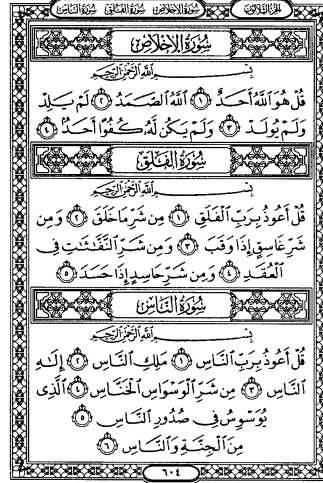 الجزء الثلاثون سورة الإخلاص سورة الفلق سورة الناس
سُورَةُ الإِخْلَاصِ
بِسْمِ اللَّهِ الرَّحْمَنِ الرَّحِيمِ
قُلْ هُوَ اللَّهُ أَحَدٌ ١ اللَّهُ الصَّمَدُ ٢ لَمْ يَلِدْ
وَلَمْ يُولَدْ ٣ وَلَمْ يَكُن لَّهُ كُفُوًا أَحَدٌ ٤
سُورَةُ الْفَلَقِ
بِسْمِ اللَّهِ الرَّحْمَنِ الرَّحِيمِ
قُلْ أَعُوذُ بِرَبِّ الْفَلَقِ ١ مِن شَرِّ مَا خَلَقَ ٢ وَمِن
شَرِّ غَاسِقٍ إِذَا وَقَبَ ٣ وَمِن شَرِّ النَّفَّاثَاتِ فِي
الْعُقَدِ ٤ وَمِن شَرِّ حَاسِدٍ إِذَا حَسَدَ ٥
سُورَةُ النَّاسِ
بِسْمِ اللَّهِ الرَّحْمَنِ الرَّحِيمِ
قُلْ أَعُوذُ بِرَبِّ النَّاسِ ١ مَلِكِ النَّاسِ ٢ إِلَهِ
النَّاسِ ٣ مِن شَرِّ الْوَسْوَاسِ الْخَنَّاسِ ٤ الَّذِي
يُوَسْوِسُ فِي صُدُورِ النَّاسِ ٥
مِنَ الْجِنَّةِ وَالنَّاسِ ٦
٦٠٤